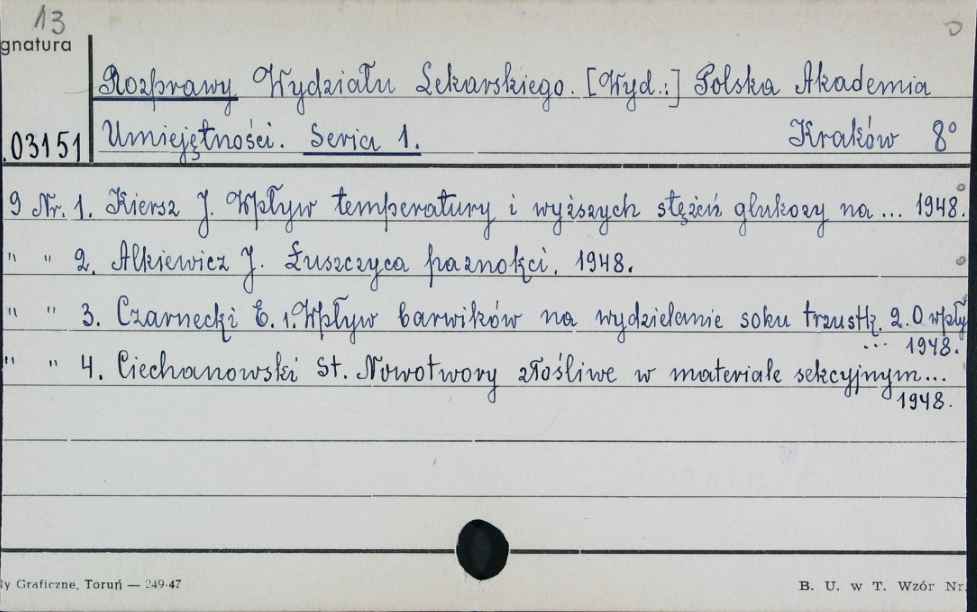 13
gnatura
Rozprawy Wydziału Lekarskiego. [Wyd.:] Polska Akademia
.03151 Umiejętności. Seria 1. Kraków 8°
9 Nr. 1. Kiersz J. Wpływ temperatury i wyższych stężeń glukozy na ... 1948.
" " 2. Alkiewicz J. Łuszczyca paznokci. 1948.
" " 3. Czarnecki E. 1. Wpływ barwików na wydzielanie soku trzustk. 2. O wpły
... 1948.
" " 4. Ciechanowski St. Nowotwory złośliwe w materiale sekcyjnym...
1948.
y Graficzne, Toruń — 249-47
B. U. w T. Wzór Nr.